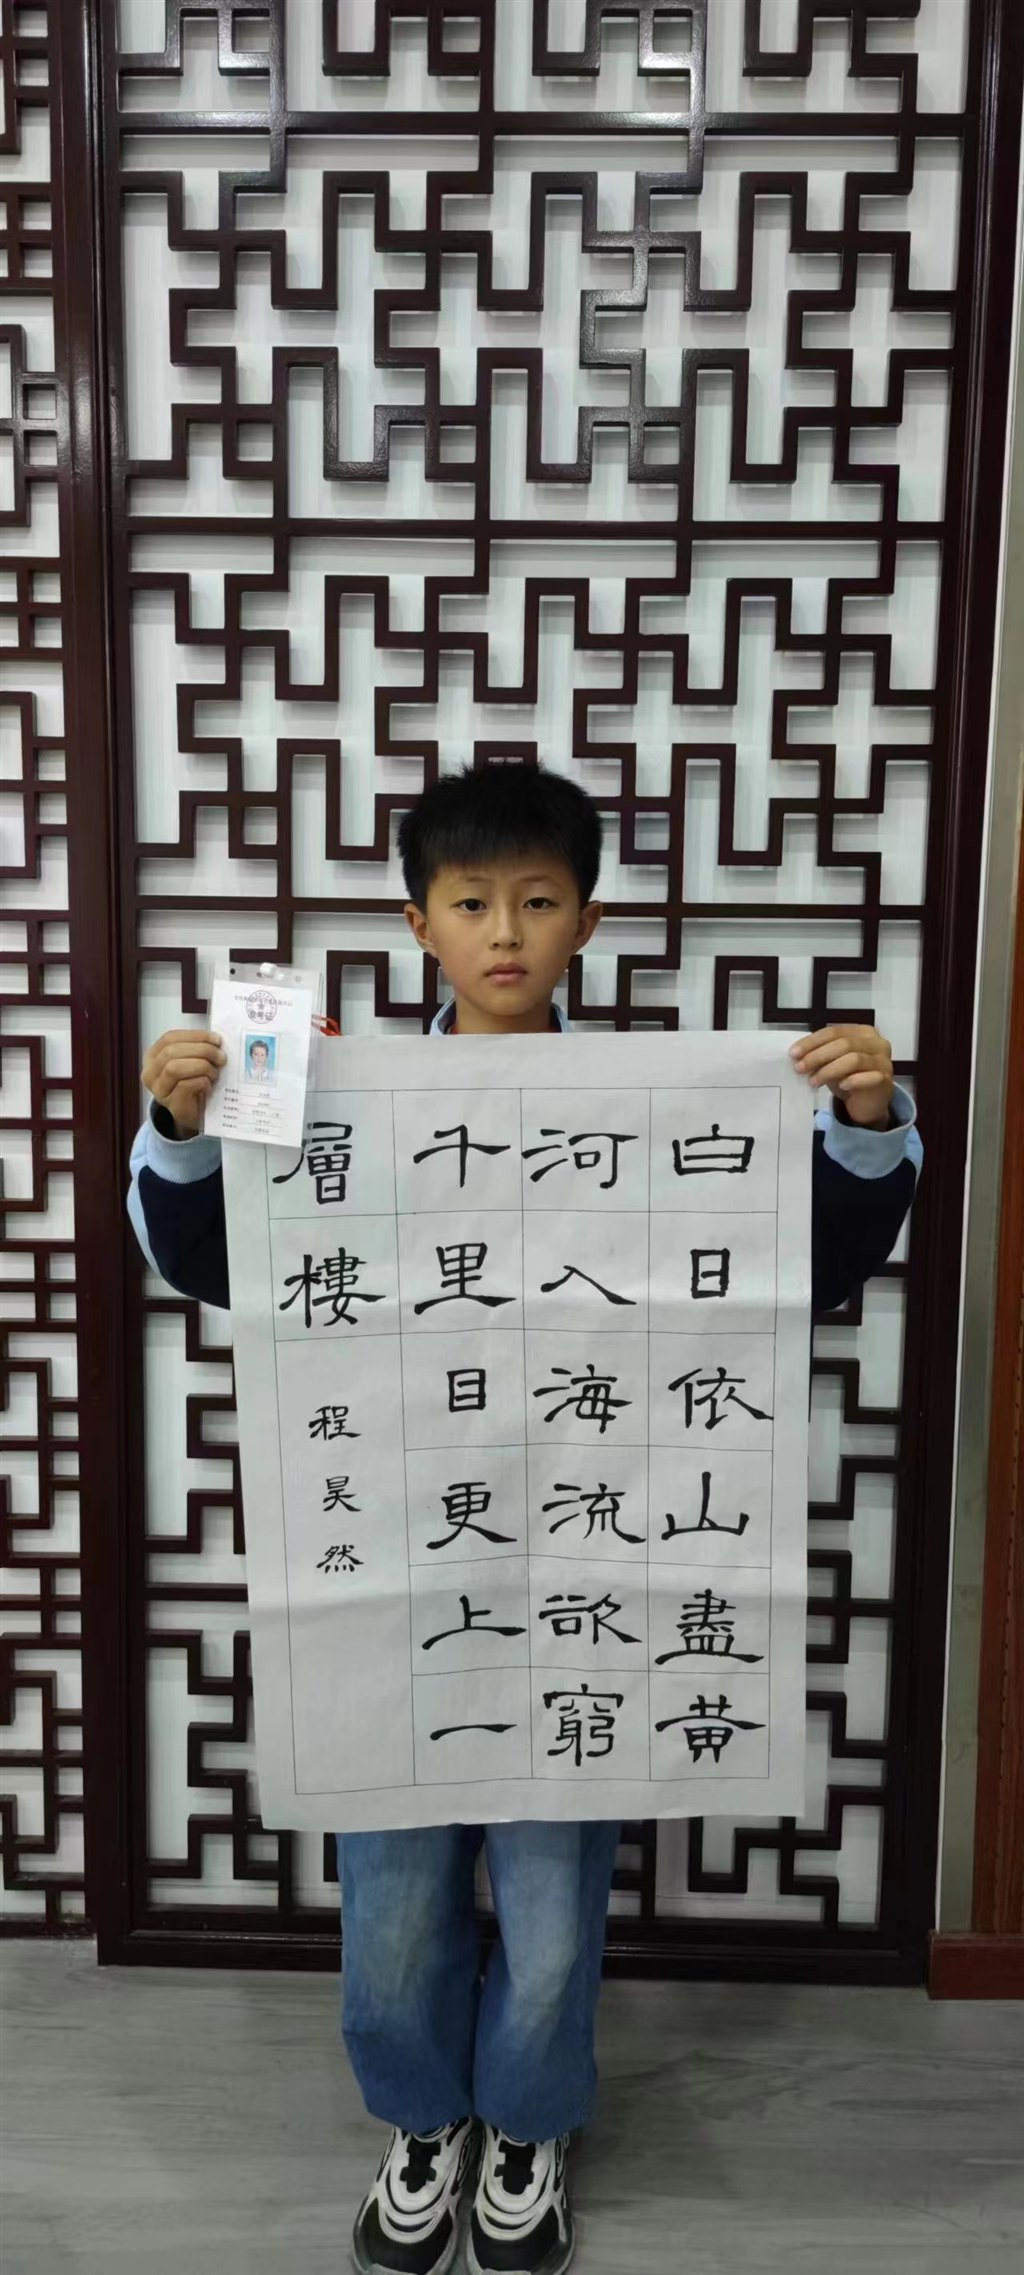 准考证
白日依山盡黄
河入海流欲窮
千里目更上一
層樓
程昊然